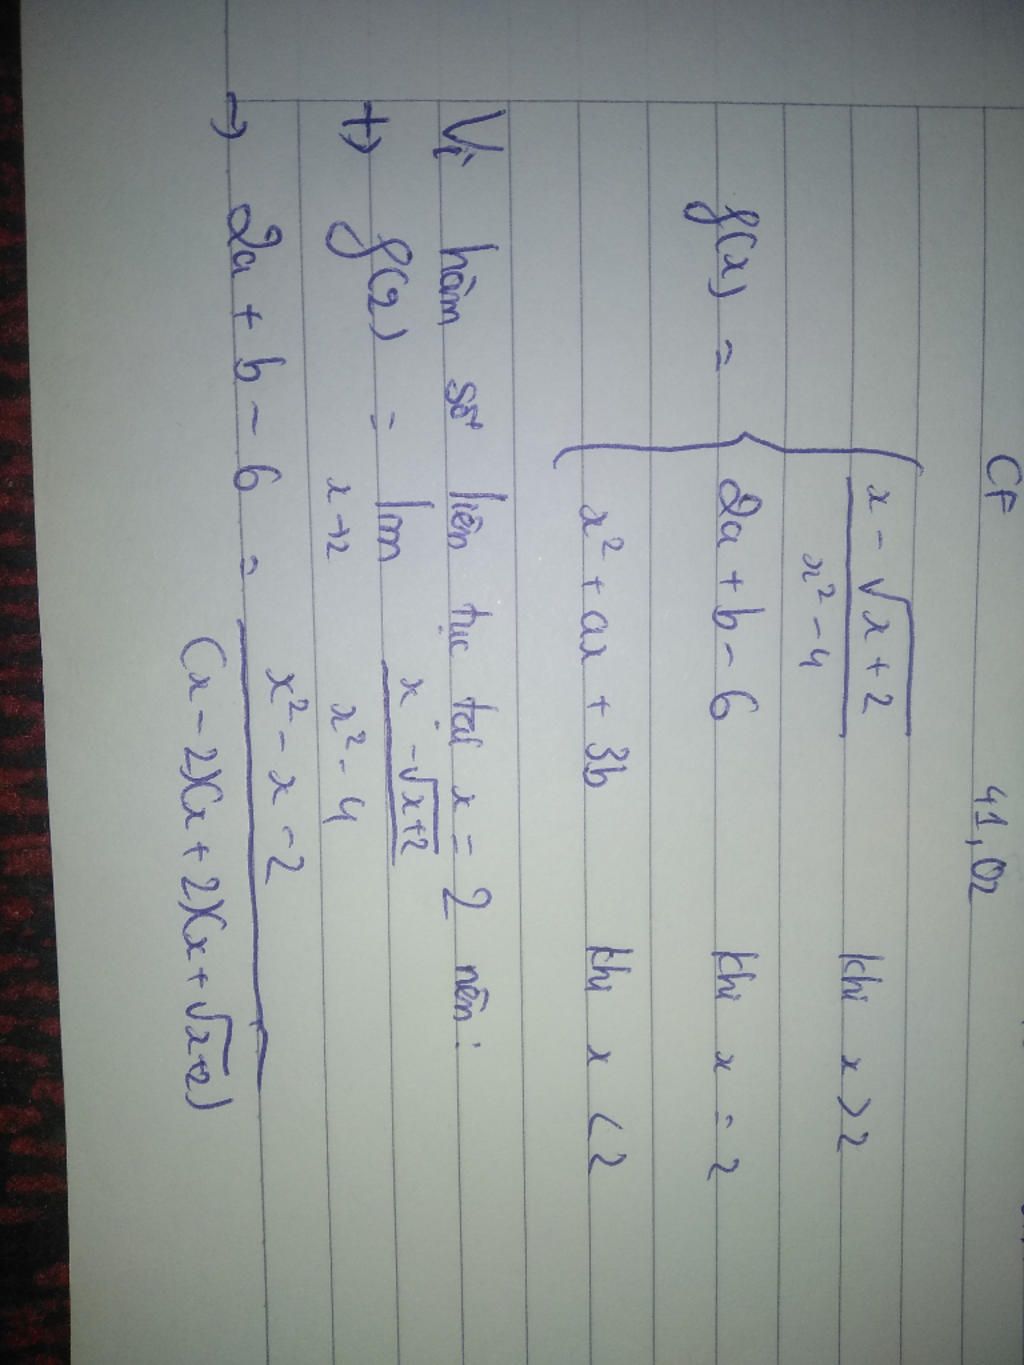 CF 41,02
f(x) = { x - √x+2 / x² - 4 khi x > 2
2a + b - 6 khi x = 2
x² + ax + 3b khi x < 2
Vì hàm số liên tục tại x = 2 nên:
+) f(2) = lim x→2 x - √x+2 / x² - 4
→ 2a + b - 6 = x² - x - 2 / (x - 2)(x + 2)(x + √x+2)